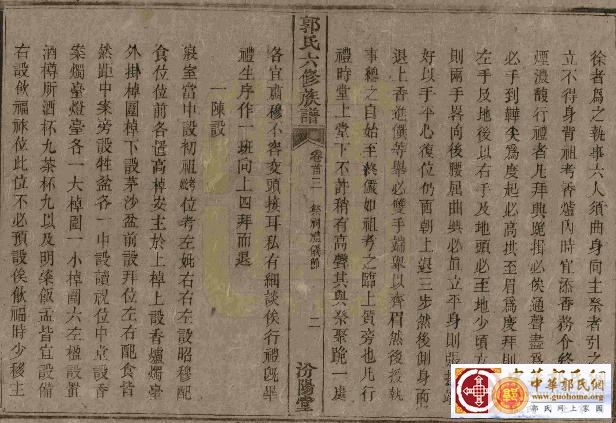 徐者為之執事六人須曲身同主祭者引之
立不得身背祖考香爐內時宜添香務介終
煙濃馥行禮者凡拜興跪揖必俟通聲盡為
必手到轉尖為度起必高拱至眉為度拜則
左手及地後以右手及地頭必至地少頃方
則兩手畧向後腰屈曲興必直立平身則
好以手平心復位仍面朝上退三步然後側身而
退上香進饌等舉必雙手端舉以齊眉然後授執
事總之自始至終儼如祖考之臨上質旁也凡行
禮時堂上堂下不許稍有高聲其與祭聚跪一處
郭氏六修族譜
卷首二
祭祠禮儀節
二
汾陽堂
各宜肅穆不容交頭接耳私有細談俟行禮既畢
禮生序作一班向上四拜而退
一陳設
寢室當中設初祖妣位考左妣右右左設昭穆配
食位位前各置高棹安主於上棹上設香爐燭臺
外掛棹圍棹下設茅沙盆前設拜位左右配食皆
然距中案旁設牲盆各一中設讀祝位中堂設香
案燭臺燈臺各一大棹圍一小棹圍六左楹設置
酒樽所酒杯九茶杯九以及明粢飯盂皆宜設備
右設飲福胙位此位不必預設俟飲福時少移主
中華郭氏網
www.guohome.org
郭氏網上家園